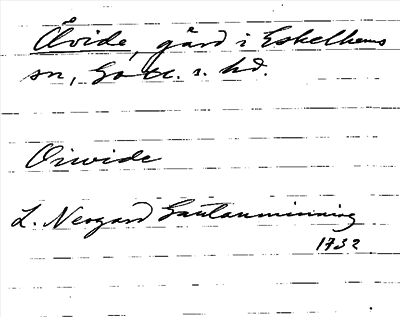 Åvide, gård i Eskelhems
sn, Gotl. s. hd.
Oivide
L. Neogard Gautauminning
1732